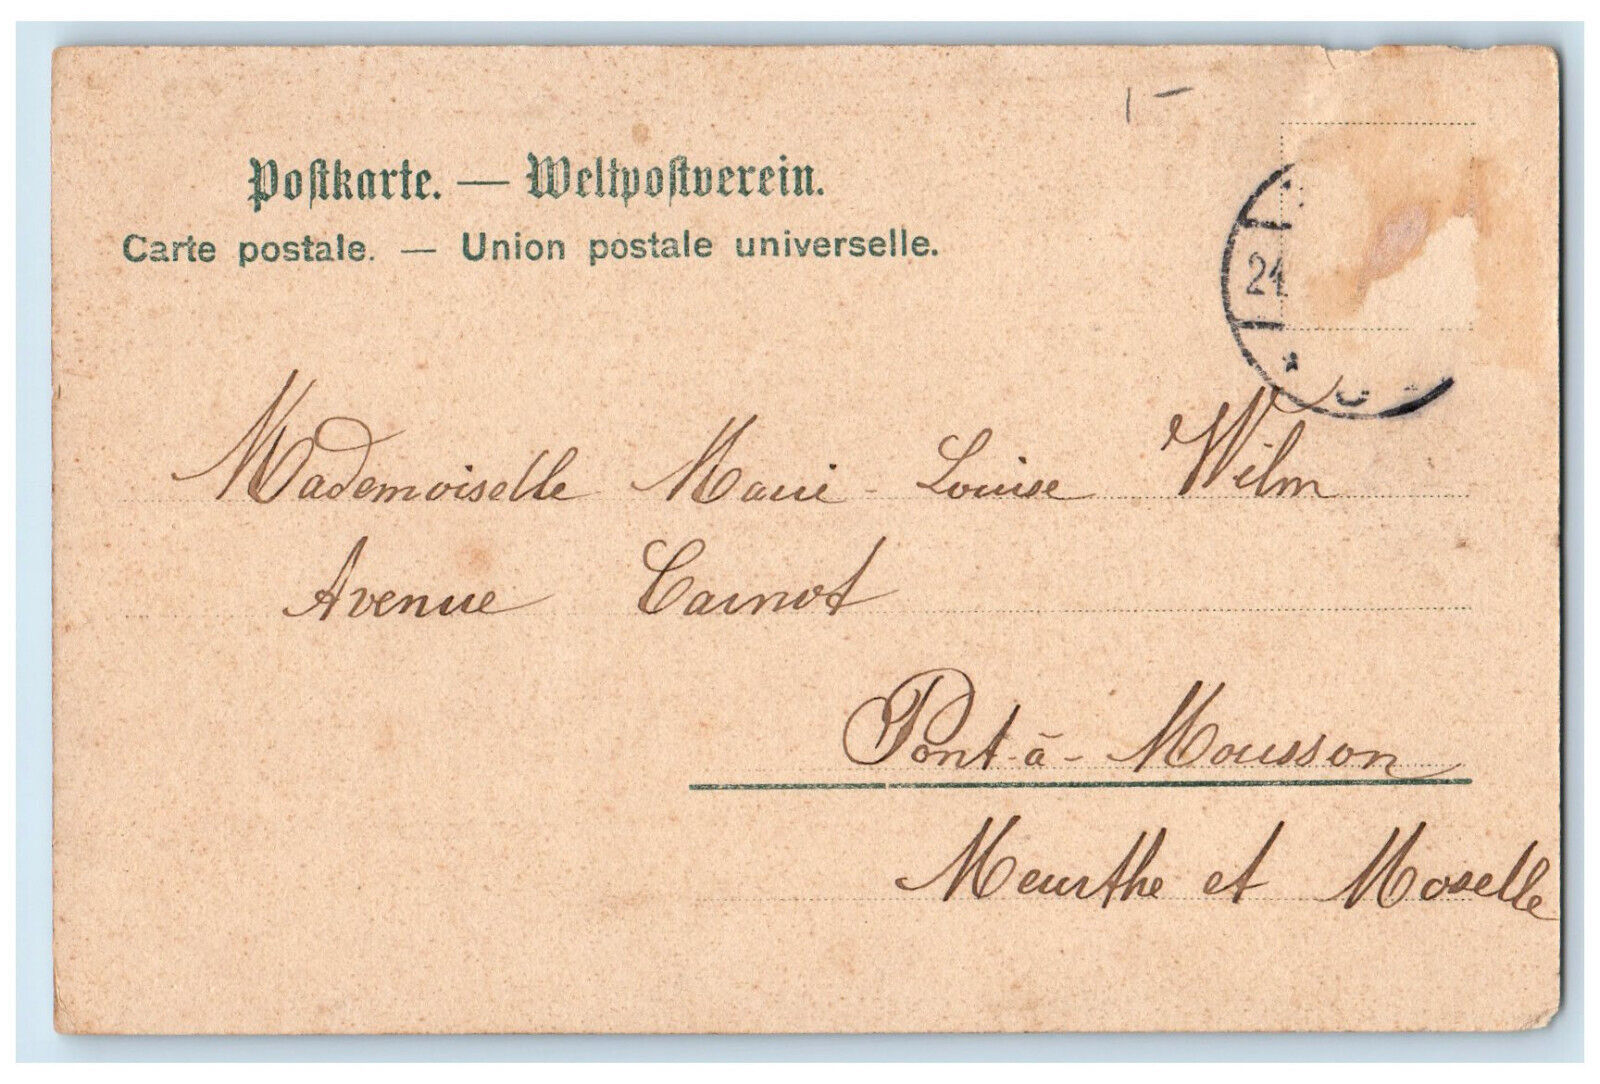 Postkarte. — Weltpostverein.
Carte postale. — Union postale universelle.
24
Mademoiselle Marie-Louise Wilm
Avenue Carnot
Pont-à-Mousson
Meurthe et Moselle